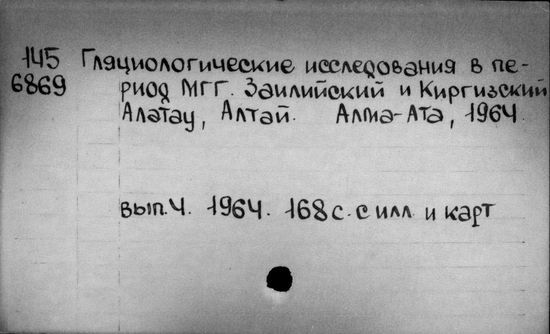 145 Гляциологические исследования в пе-
6869 риод МГГ. Заилийский и Киргизский
Алатау, Алтай. Алма-Ата, 1964.
вып.4. 1964. 168 с. с илл. и карт